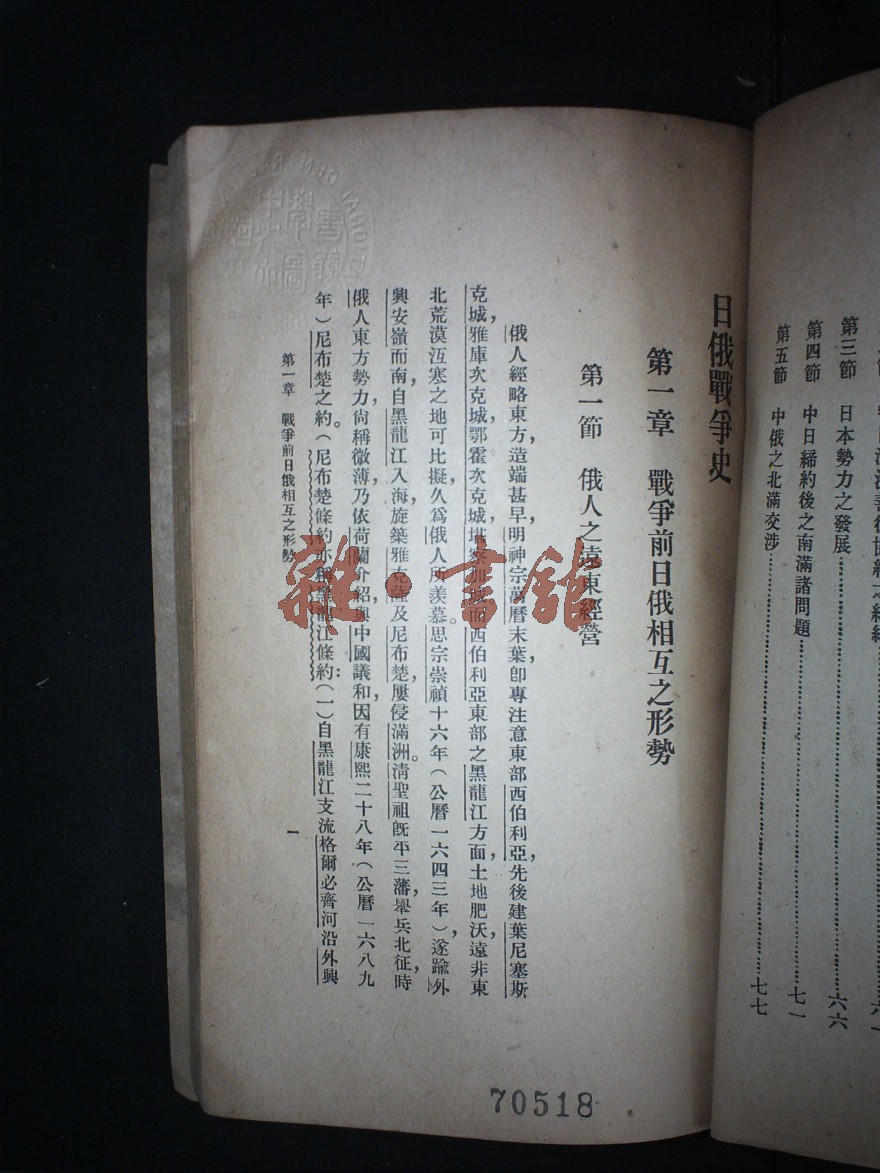 第三節 日本勢力之發展 六六
第四節 中日締約後之南滿諸問題 七一
第五節 中俄之北滿交涉 七七
日俄戰爭史
第一章 戰爭前日俄相互之形勢
第一節 俄人之遠東經營
俄人經略東方，造端甚早，明神宗萬曆末葉，卽專注意東部西伯利亞，先後建葉尼塞斯
克城，雅庫次克城，鄂霍次克城，堪察加城，而西伯利亞東部之黑龍江方面，土地肥沃，遠非東
北荒漠沍寒之地可比擬，久爲俄人所羨慕。思宗崇禎十六年（公曆一六四三年），遂踰外
興安嶺而南，自黑龍江入海，旋築雅克薩及尼布楚，屢侵滿洲。淸聖祖旣平三藩，舉兵北征，時
俄人東方勢力，尙稱微薄，乃依荷蘭介紹，與中國議和，因有康熙二十八年（公曆一六八九
年）尼布楚之約。（尼布楚條約亦稱黑龍江條約）：（一）自黑龍江支流格爾必齊河沿外興
第一章 戰爭前日俄相互之形勢
一
雜·書館
70518